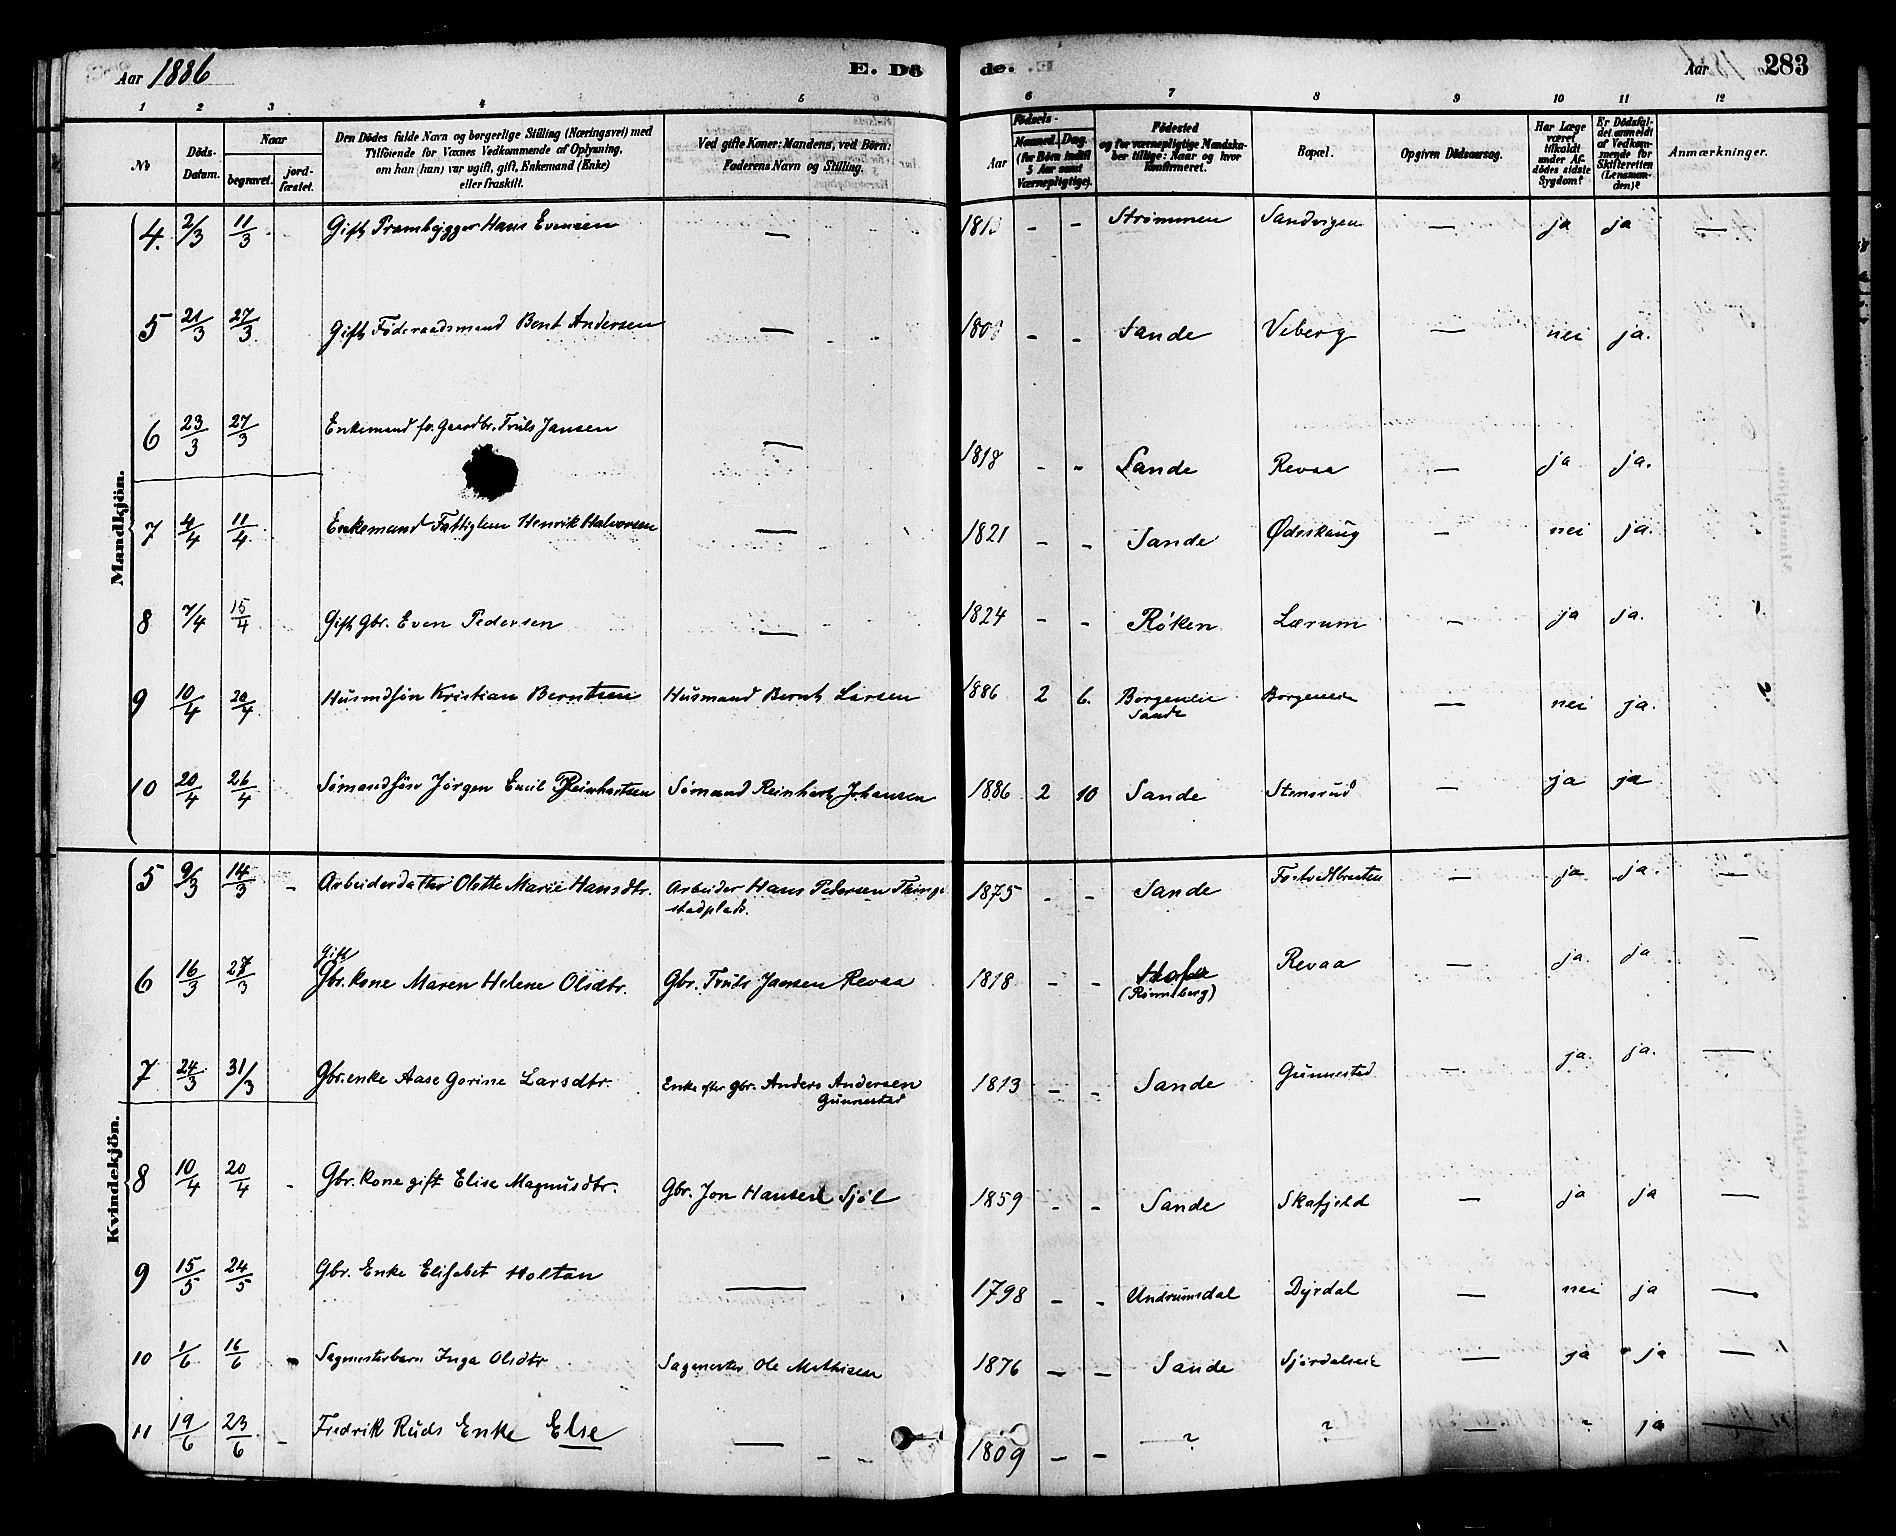 Aar 1886 E. Dö de. Aar 283
1 2 3 4 5 6 7 8 9 10 11 12
№ Döds-Datum. Naar begravet. jord-fæstet. Den Dödes fulde Navn og borgerlige Stilling (Næringsvei) med Tilföiende for Voxnes Vedkommende af Oplysning, om han (hun) var ugift, gift, Enkemand (Enke) eller fraskilt. Ved gifte Koner: Mandens, ved Börn: Faderens Navn og Stilling. Födsels- Aar Maaned. Dag. (for Börn indtil 5 Aar samt Værnepligtige). Födested og for værnepligtige Mandskaber tillige: Naar og hvor Konfirmeret. Bopæl. Opgiven Dödsaarsag. Har Læge været tilkaldt under Afdödes sidste Sygdom? Er Dödsfaldet anmeldt af Vedkommende for Skifteretten (Lensmanden)? Anmærkninger.
Mandkjön.
4. 2/3 11/3 Gift Prambygger Hans Evensen — - - Strømmen Sandvigen — ja ja —
5 21/3 27/3 Gift Føderaadsmand Bent Andersen — - - Sande Viberg — nei ja.
6 23/3 27/3 Enkemand fv. Gaardbr. Truls Jansen — 1818 - - Sande Revaa — ja ja.
7 4/4 11/4 Enkemand Fattiglem Henrik Halvorsen — 1821 - - Sande Ødeskaug — nei ja.
8 7/4 15/4 Gift Gbr. Even Pedersen — 1824 - - Røken Lærum - ja ja.
9 10/4 20/4 Husmdsøn Kristian Berntsen Husmand Bernt Larsen 1886 2 6. Borgeneie Sande Borgeneie — nei ja.
10 20/4 26/4 Sømandssøn Jørgen Emil Reinhartsen Sømand Reinhart Johansen 1886 2 10 Sande Stensrud — ja ja
Kvindekjön.
5 9/3 14/3 - Arbeiderdatter Olette Marie Hansdtr. Arbeider Hans Pedersen Thinge-
stadplads. 1875 - - Sande — ja ja. —
Gift
6 16/3 27/3 Gbr.kone Maren Helene Olsdtr. Gbr. Truls Jansen Revaa 1818 - - (Rønneberg) Revaa — ja ja —
7 24/3 31/3 Gbr.enke Aase Gorine Larsdtr. Enke efter gbr. Anders Andersen
Gunnestad 1813 - - Sande Gunnestad — ja ja. —
8 10/4 20/4 - Gbr. kone gift Elise Magnusdtr. Gbr. Jon Hansen Sjøl 1859 - - Sande Skafjeld — ja ja —
9 15/5 24/5 Gbr. Enke Elisabet Holtan — 1798 - - Undrumsdal Dyrdal — nei ja —
10 1/6 16/6 - Sagmesterbarn Inga Olsdtr Sagmester Ole Mathisen 1876 - - Sande — ja ja —
11 19/6 23/6 - Fredrik Ruds Enke Else — 1809 - - ? ? — ? ja —